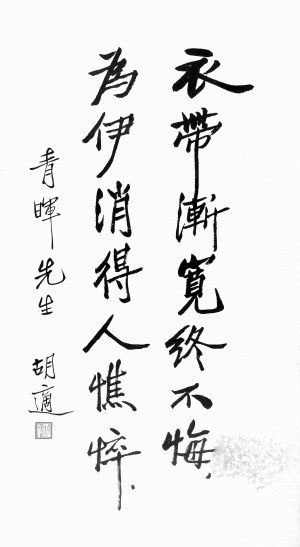 衣帶漸寬終不悔.
為伊消得人憔悴.
青暉先生 胡適